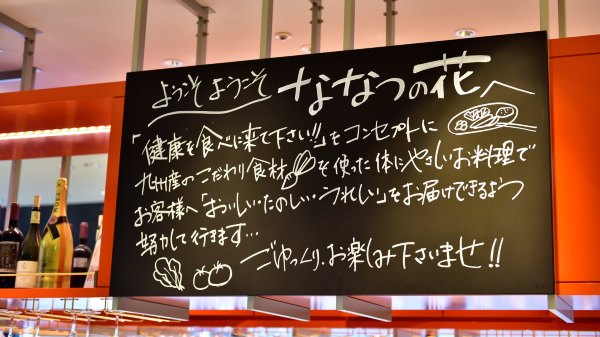 ようこそ ようこそ ななつの花へ
「健康を食べに来て下さい!!」をコンセプトに
九州産のこだわり食材を使った体にやさしいお料理で
お客様へ「おいしい・たのしい・うれしい」をお届けできるよう
努力して行きます…
ごゆっくり、お楽しみ下さいませ!!